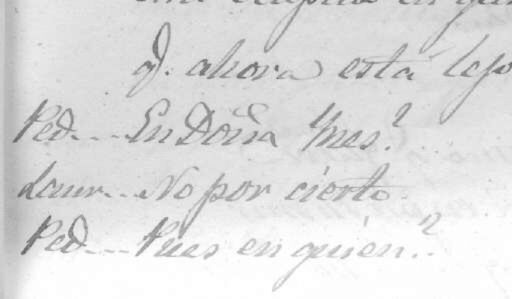 q.e ahora está lejo
Ped... En Doña Ynes?
Laur... No por cierto.
Ped... Pues en quien?